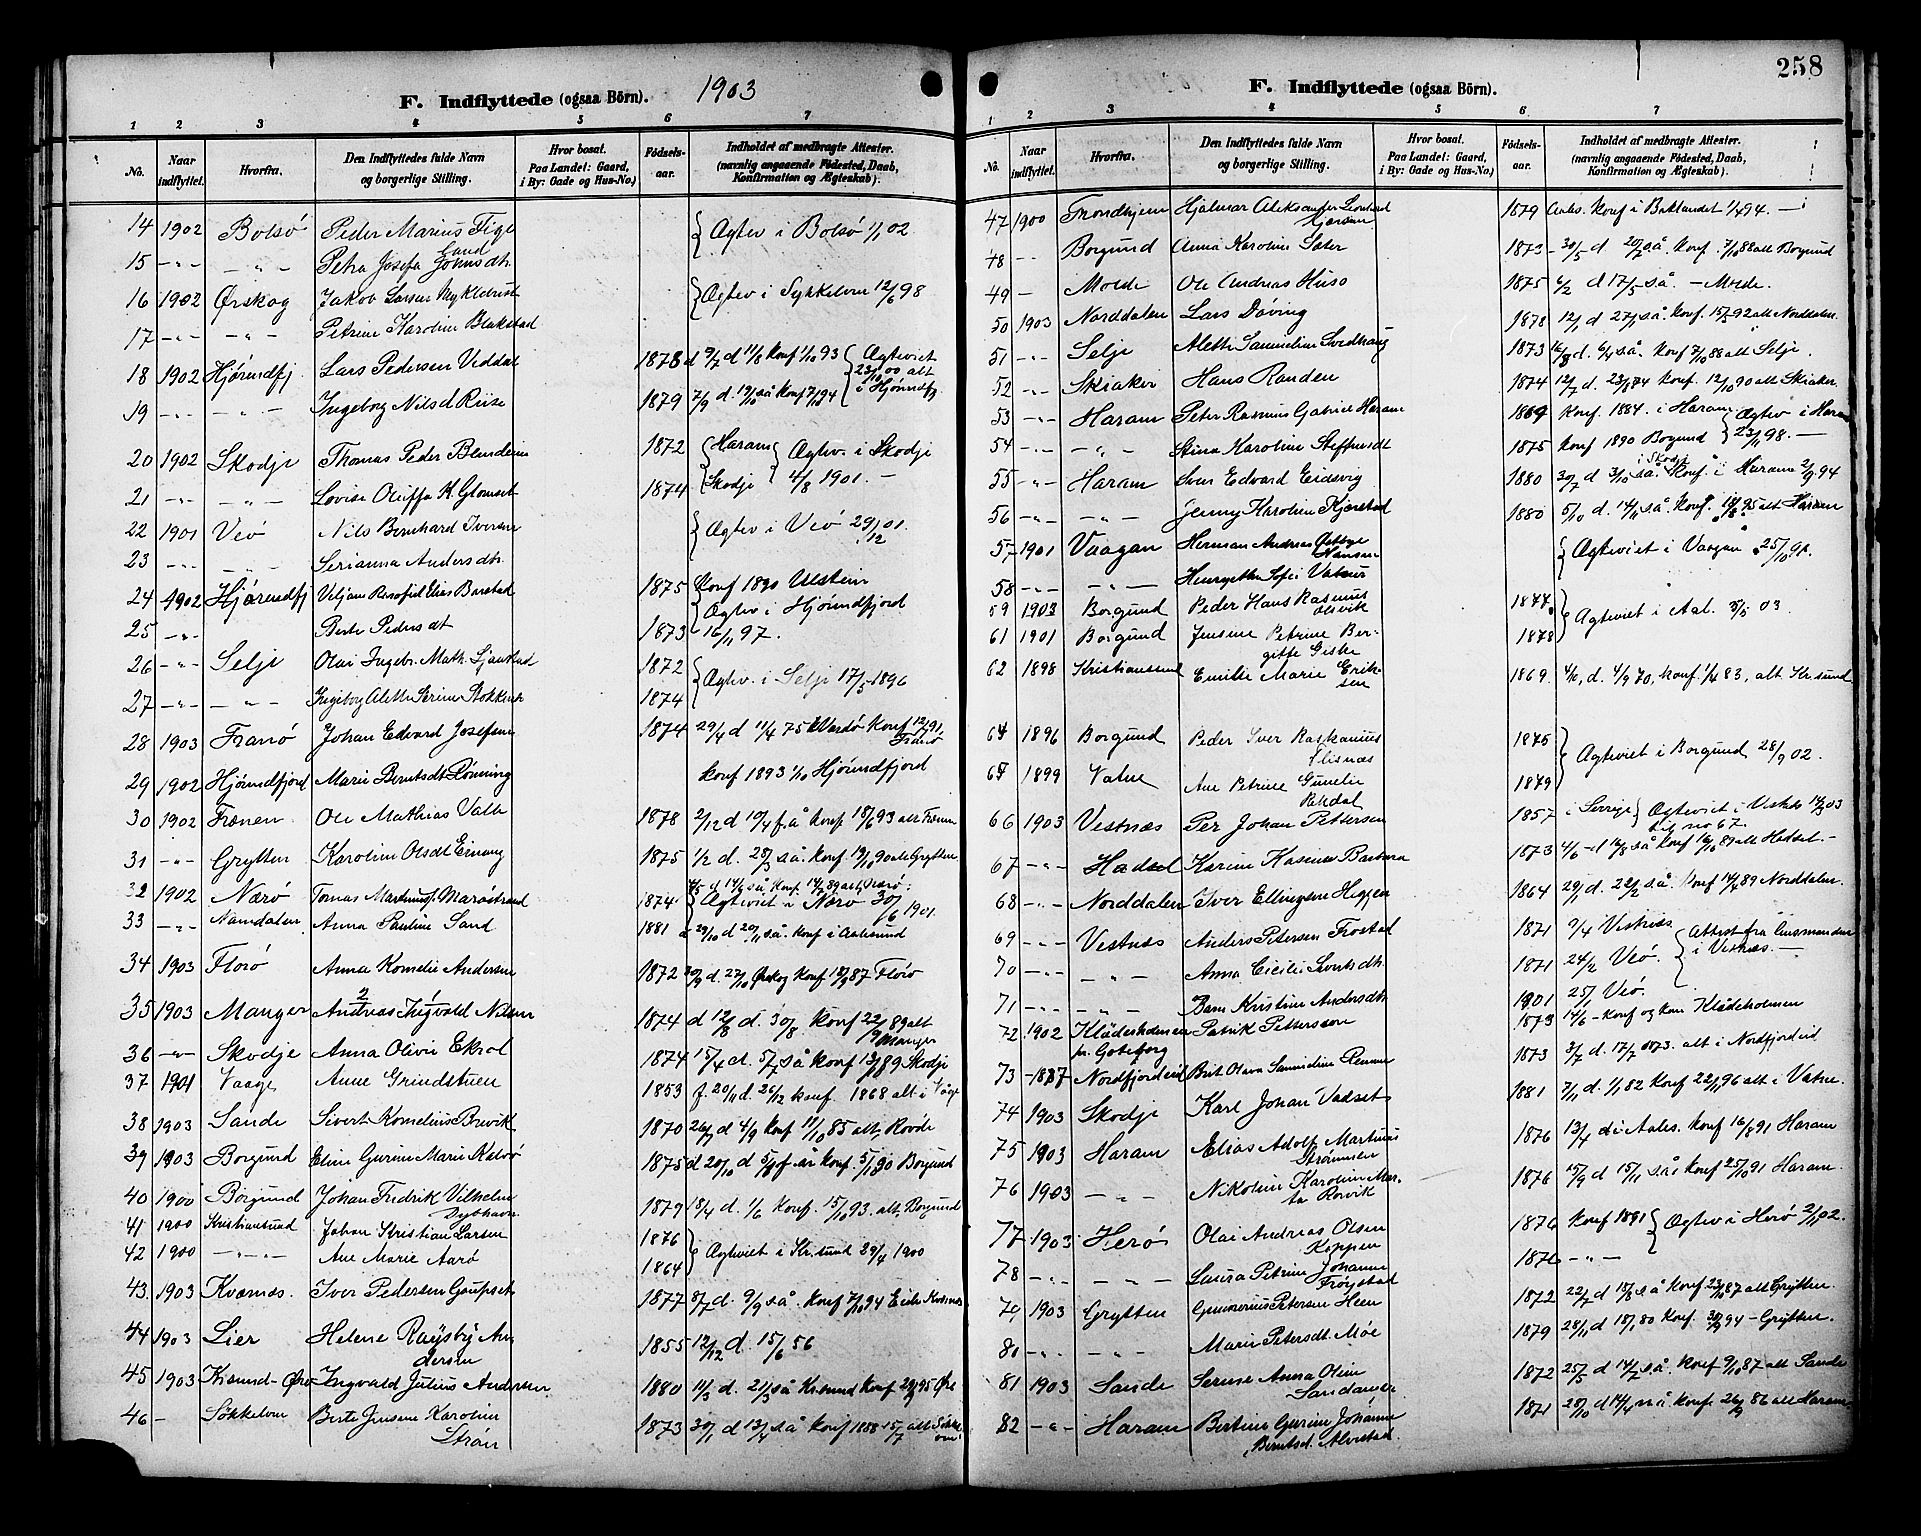 1903
F. Indflyttede (ogsaa Börn).
1 2 3 4 5 6 7
No. Naar indflyttet. Hvorfra. Den Indflyttedes fulde Navn og borgerlige Stilling. Hvor bosat. Paa Landet: Gaard, i By: Gade og Hus-No.) Fødsels-aar. Indholdet af medbragte Attester. (navnlig angaaende Fødested, Daab, Konfirmation og Ægteskab).
14 1902 Bolsø Peder Marius Tige Sand Ægtev i Bolsø 1/1 02
15 -"- -"- Petra Josefa Johnsdtr.
16 1902 Ørskog Jakob Larsen Myklebust Ægtev i Sykkelven 12/6 98
17 -"- -"- Petrine Karoline Blakstad
18 1902 Hjørundfj Lars Pedersen Viddal 1878 d 9/7 d 11/8 Konf 1/10 93 Ægteviet 23/10 00 alt i Hjørundfj
19 -"- -"- Ingeborg Nilsd Riise 1879 7/9 d. 19/10 så Konf 7/10 94
20 1902 Skodje Thomas Peder Blindheim 1872 Haram Ægtev. i Skodje
21 -"- -"- Lovise Oluffa K. Glomset 1874 Skodje 4/8 1901. -
22 1901 Veø Nils Bernhard Iversen Ægtev i Veø 29/12 01.
23 -"- Serianna Andersdtr.
24 1902 Hjørundfj Viljam Rasofiel Elias Barstad 1875 Konf 1890 Ulstein
25 -"- Berte Pedersdt 1873 Ægtev i Hjørundfjord 16/11 97.
26 -"- Selje Olai Ingebr. Math. Sjaastad 1872 Ægtev. i Selje 17/5 1896
27 -"- -"- Ingeborg Alette Serine Stokkevik 1874
28 1903 Franø Johan Edvard Josefsen 1874 29/4 d 11/4 75 i Vardø Konf 12/ 91, Franø
29 1902 Hjørundfjord Marie Berntsdt Rønning konf 1893 1/10 Hjørundfjord
30 1902 Frænen Ole Mathias Valle 1878 2/12 d 19/4 f.å Konf 18/6 93 alt Frænen
31 -"- Grytten Karoline Olsdt Einang 1875 1/2 d. 28/3 så. Konf. 19/ 90 alt Grytten
32 1902 Nærø Tomas Martinus Marøstrand 1874 Ægteviet i Nærø 30/6 1901.
33 -"- Namdalen Anna Pauline Sand 1881 29/10 d 20/11 så. Konf i Aalesund
34 1903 Florø Anna Kornelie Andersen 1872 30/9 d. 27/10 Ørskog Konf 18/9 87 Florø
35 1903 Manger Andreas Ingvald Nilsen 1874 d 12/8 d. 30/8 Konf 22/9 89 alt Manger
36 -"- Skodje Anna Olivie Ekrol 1874 15/4 d. 5/7 så Konf 13/ 89 Skodje
37 1901 Vaage Anne Grindstuen 1853 f. 20/11 d. 26/12 konf. 1868 alt i Våge
38 1903 Sande Sivert Kornelius Brevik 1870 26/7 d 4/9 Konf 11/10 85 alt, Rovde
39 1903 Borgund Eline Gurine Marie Kalvø 1875 d 20/10 d 5/ f. år Konf. 5/ 90 Borgund
40 1900 Borgund Johan Fredrik Vilhelm Dybhavn 1879 18/4 d. 1/6 Konf. 15/10 93. alt, Borgund
41 1900 Kristiansund Johan Kristian Larsen 1876 Ægteviet i Kr.sund 29/4 1900
42 1900 -"- Ane Marie Aarø 1864
43. 1903 Kværnæs. Iver Pedersen Gaupset 1877 8/7 d. 9/9 så. Konf 7/10 94 Eide Kværnæs
44 1903 Lier Helene Røysby Andersen 1855 12/12 d. 15/6 56
45 1903 Krsund-Øre Ingvald Julius Andersen 1880 11/3 d. 21/3 så Krsund Konf 29/ 95 Øre
46 - Søkkelven Berte Jensine Karoline Strøm 1873 30/1 d 13/4 så Konf 1888 15/7 alt Søkkelven
258
F. Indflyttede (ogsaa Börn).
1 2 3 4 5 6 7
No. Naar indflyttet. Hvorfra. Den Indflyttedes fulde Navn og borgerlige Stilling. Hvor bosat. Paa Landet: Gaard, i By: Gade og Hus-No.) Fødsels-aar. Indholdet af medbragte Attester. (navnlig angaaende Fødested, Daab, Konfirmation og Ægteskab).
47 1900 Trondhjem Hjalmar Aleksander Leonard Iversen 1879 Aales. Konf i Baklandet 1/4 94. -
48 -"- Borgund Anna Karoline Sæter 1873 - 30/5 d 20/7 så. Konf. 7/10 88 alt Borgund
49 - Molde Ole Andreas Huse 1875 6/2 d 17/5 så. - Molde.
50 1903 Norddalen Lars Døving 1878 12/1 d 27/1 så. Konf. 15/5 92 alt Norddalen
51 -"- Selje Alette Samueline Svedhaug 1873 16/8 d. 6/4 så. Konf 7/10 88 alt Selje.
52 -"- Skiaker Hans Randen 1874 12/7 d. 23/ 74 Konf. 12/10 90 alt Skiaker
53 -"- Haram Peter Rasmus Gabriel Haram 1869 Konf. 1884. i Haram Ægtev i Haram
54 -"- -"- Stina Karoline Steffensdt 1875 Konf 1890 Borgund 23/1 98. -
55 -"- Haram Iver Edvard Eidsvig 1880 30/7 d 3/10 så i Skodje Konf. i Haram 2/9 94
56 -"- -"- Jenny Karoline Kjerstad 1880 5/10 d. 14/11 så. Konf. 18/8 95 alt Haram
57 1901 Vaagan Herman Andreas Hansen Ægteviet i Vaagan 25/10 91.
58 -"- -"- Henriette Sofie Vatner
59 1903 Borgund Peder Hans Rasmus Olsvik 1877. Ægteviet i Aal. 5/5 03
61 1901 Borgund Jensine Petrine Bergitte Giske 1878
62 1898 Kristianssund Emilie Marie Eriksen 1869. 4/10, d. 4/9 70, konf. 1/4 83, alt Kr.sund
64 1896 Borgund Peder Iver Raskanius Slisnæs 1875 Ægteviet i Borgund 28/9 02.
65 1899 Vatne Ane Petrine Gunelie Rekdal 1879
66 1903 Vestnæs Per Johan Pettersen 1857 i Sverige Ægteviet i Vestnæs 14/2 03 til no 67.
67 -"- Hadsel Karine Kasine Barbara 1873 4/6 d 17/8 så Konf 16/10 89 alt Hadsel. -
68 -"- Norddalen Iver Ellingsen Heggen 1864 29/1 d. 22/2 så. Konf 14/4 89 Norddalen.
69 -"- Vestnæs Anders Petersen Frostad 1871 9/4 Vestnæs Attest fra lensmanden i Vestnæs. -
70 -"- -"- Anna Cicilie Sivertsdtr. 1871 24/2 Veø.
71 -"- -"- Barn Kristine Andersdtr. 1901 25/1 Veø.
72 1902 Klädesholmen pr. Göteborg Patrik Pettersson 1873 14/6 - Konf og kom Klädeholmen
73 -1887 Nordfjordeid Brit Olava Samueline Remme 1873 3/7 d. 17/7 1873. alt i Nordfjordeid
74 1903 Skodje Karl Johan Vadset 1881 7/11 d. 1/1 82 Konf 22/11 96 alt i Vatne.
75 1903 Haram Elias Adolf Martinus Strømmen 1876 13/4 d i Aales. Konf 16/8 91 Haram
76 1903 -"- Nikoline Karoline Marta Rorvik 1876 15/9 d 15/11 så: Konf 25/10 91 Haram.
77 1903 Herø Olai Andreas Olsen Koppen 1876 Konf 1891 Ægtev i Herø 2/1 02.
78 -"- -"- Laura Petrine Johanne Frøystad 1876 -"-
79 1903 Grytten Gunnerius Petersen Heen 1872 22/7 d 18/8 så Konf 23/ 87 alt Grytten.
80 -"- -"- Marie Petersdt. Møe 1879 28/11 d 18/1 80 Konf. 30/9 94 - Grytten.
81 1903 Sande Serine Anna Oline Sandanger 1872 25/5 d 14/7 så. Konf 9/10 87 alt Sande
82 -"- Haram Bertine Gurine Johanne Berntsd. Alvestad 1871 28/10 d 14/4 n å Konf. 26/9 86 alt Haram.